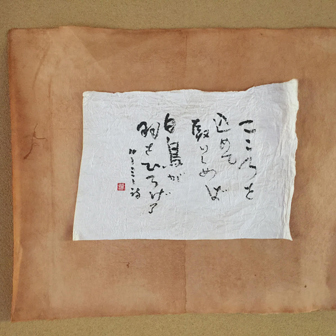 こころを
込めて
りしめば
白鳥が
羽をひろげる